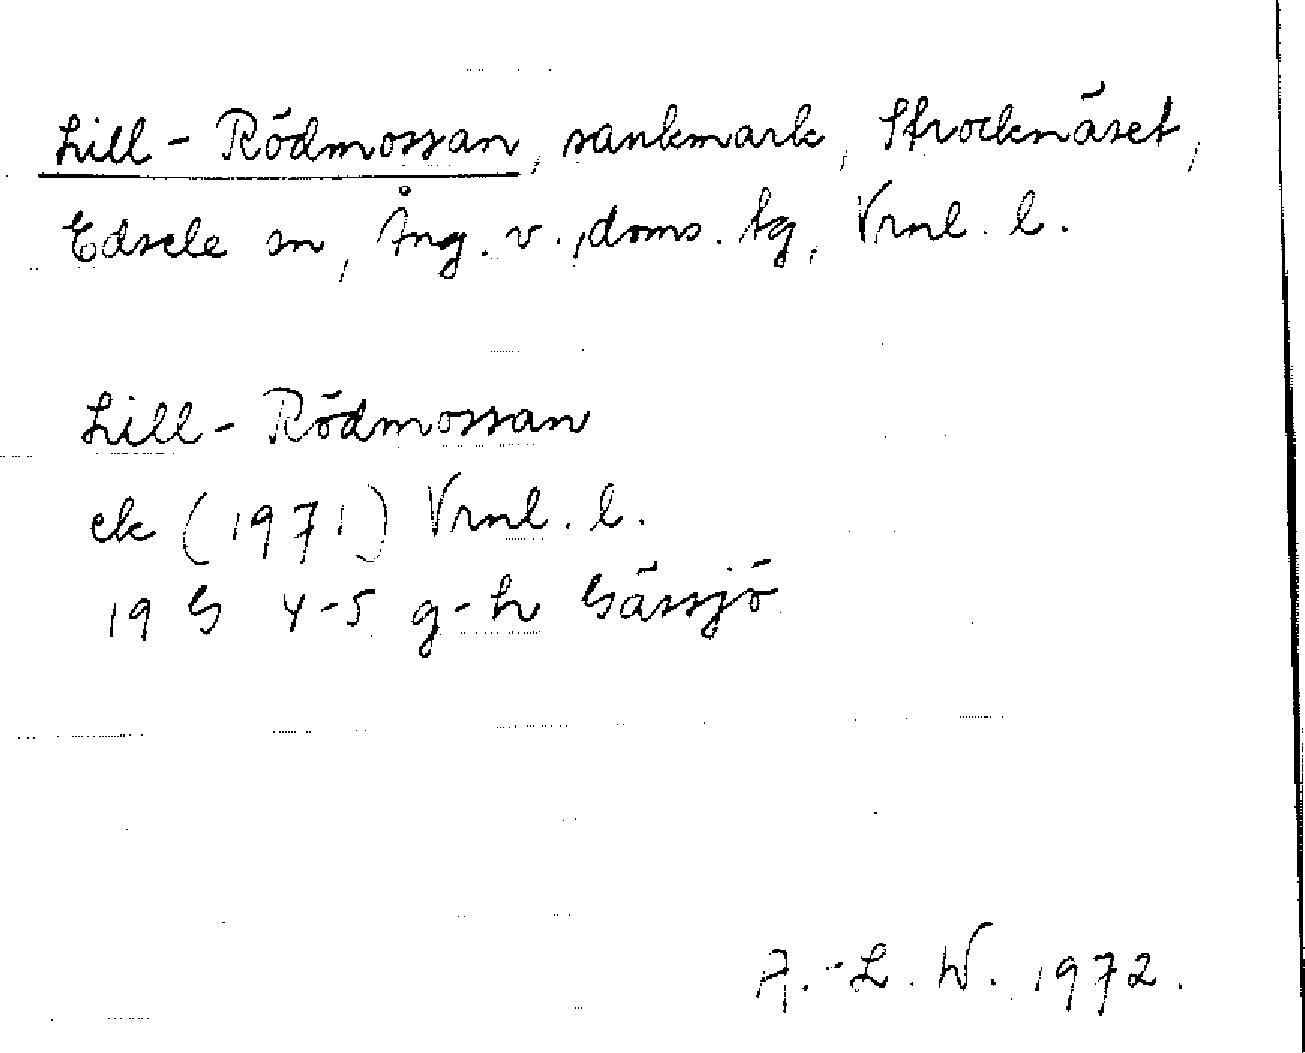 Lill-Rödmossan, sankmark, Strocknäset,
Edsele sn, Ång. v., doms. tg, Vrnl. l.
Lill-Rödmossan
ek (1971) Vrnl. l.
19 G 4-5 g-h Gässjö
A.-L. W. 1972.